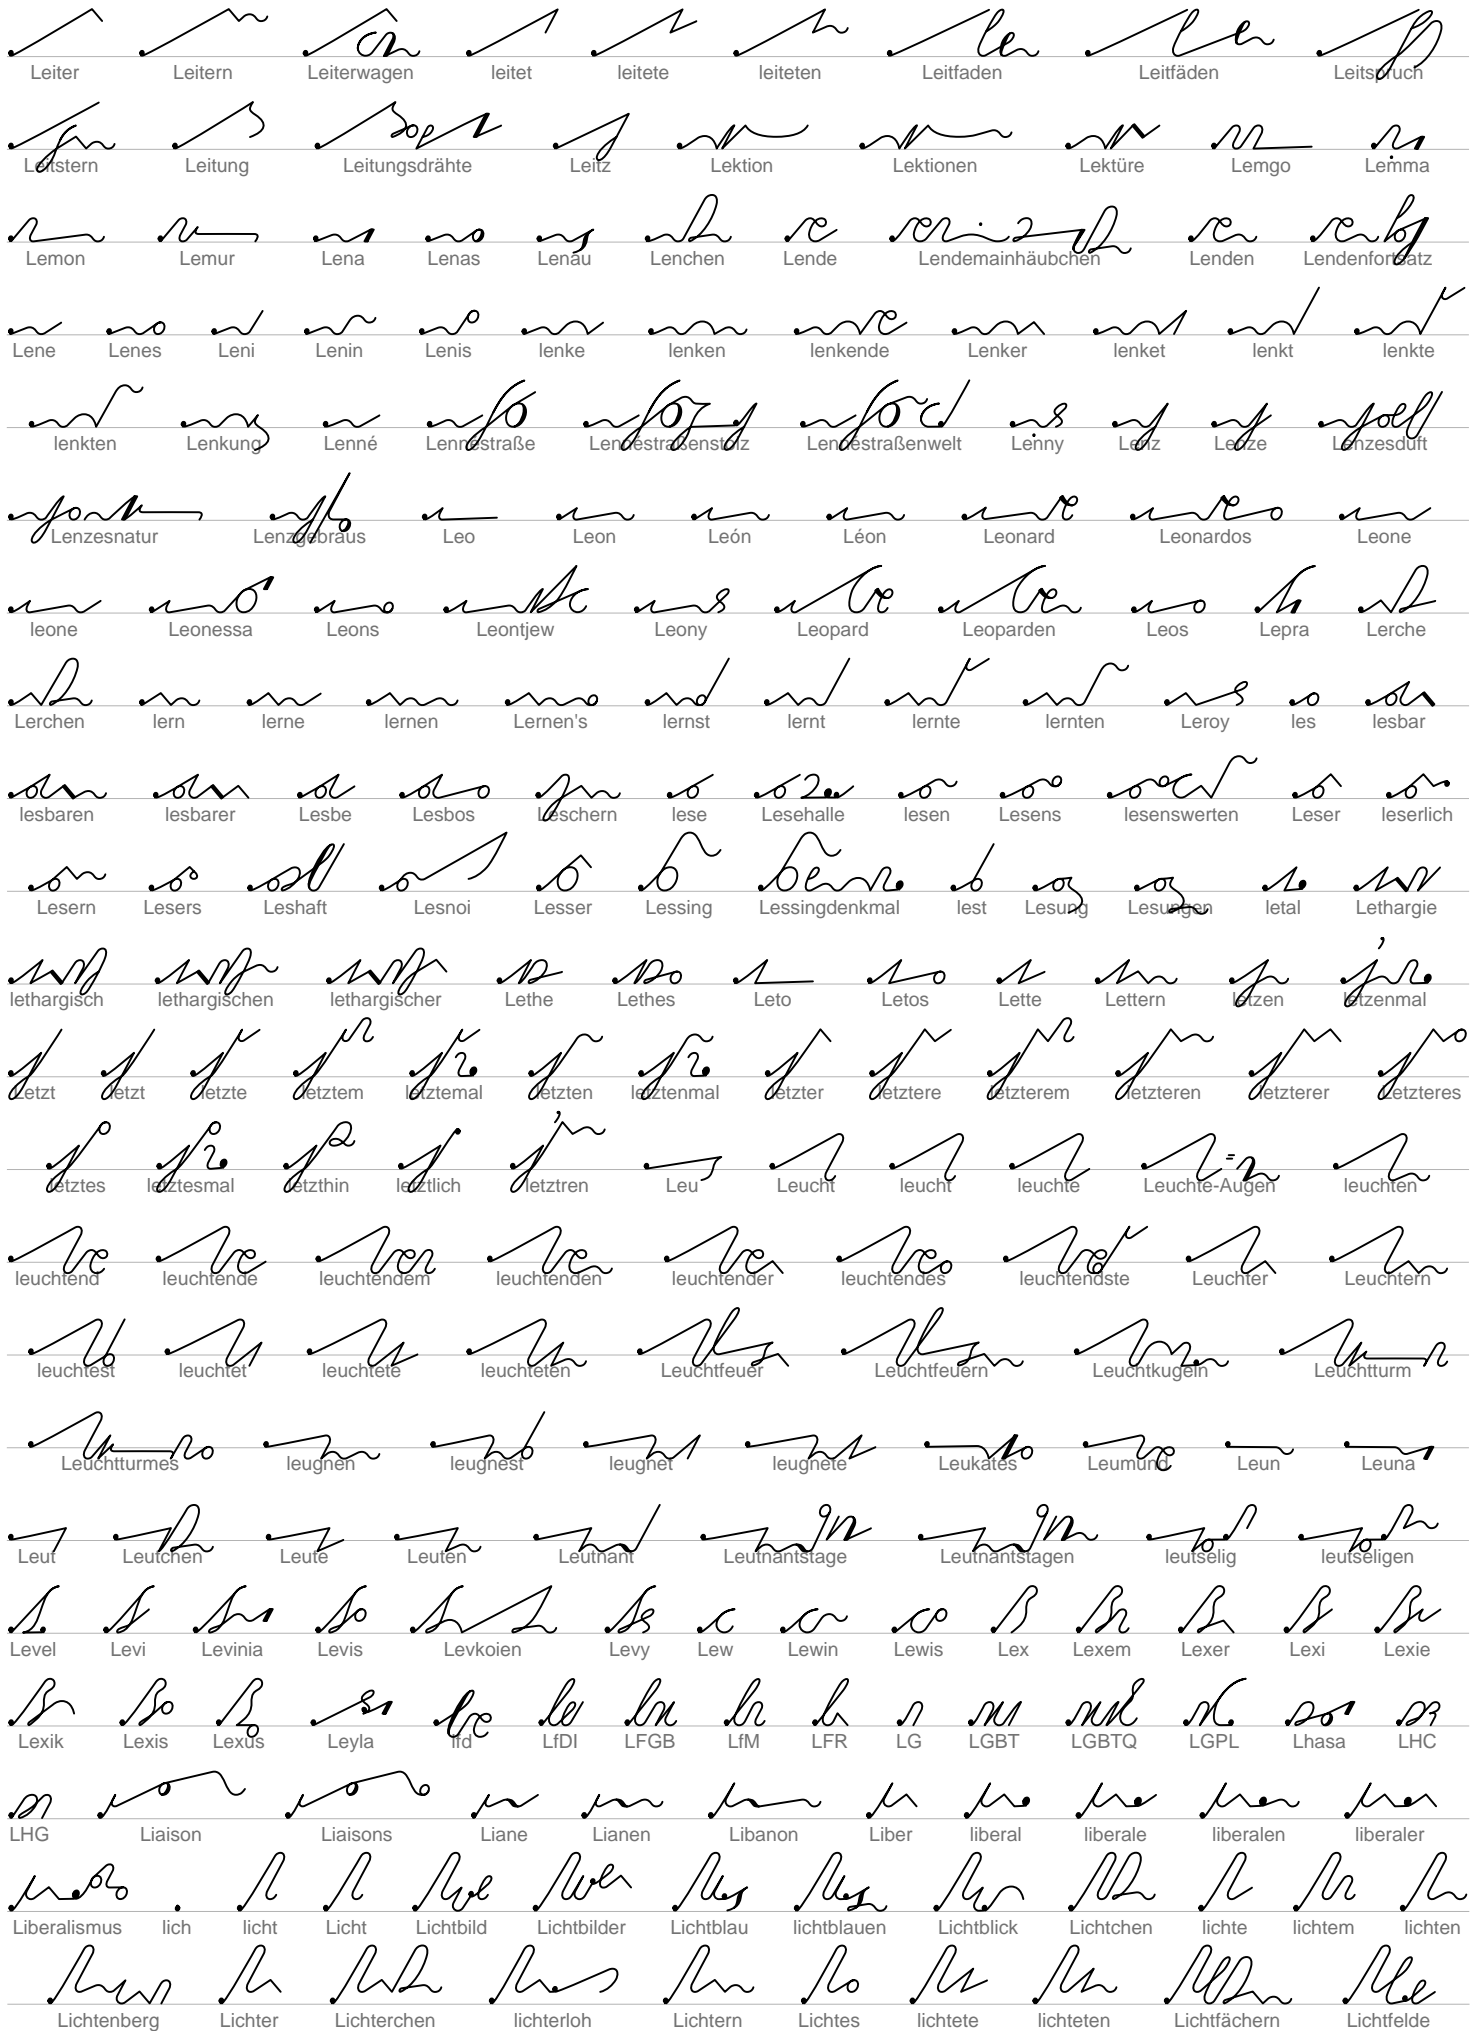 Leiter Leitern Leiterwagen leitet leitete leiteten Leitfaden Leitfäden Leitspruch
Leitstern Leitung Leitungsdrähte Leitz Lektion Lektionen Lektüre Lemgo Lemma
Lemon Lemur Lena Lenas Lenau Lenchen Lende Lendemainhäubchen Lenden Lendenfortsatz
Lene Lenes Leni Lenin Lenis lenke lenken lenkende Lenker lenket lenkt lenkte
lenkten Lenkung Lenné Lennéstraße Lennéstraßenstolz Lennéstraßenwelt Lenny Lenz Lenze Lenzesduft
Lenzesnatur Lenzgebraus Leo Leon León Léon Leonard Leonardos Leone
leone Leonessa Leons Leontjew Leony Leopard Leoparden Leos Lepra Lerche
Lerchen lern lerne lernen Lernen's lernst lernt lernte lernten Leroy les lesbar
lesbaren lesbarer Lesbe Lesbos Leschern lese Lesehalle lesen Lesens lesenswerten Leser leserlich
Lesern Lesers Leshaft Lesnoi Lesser Lessing Lessingdenkmal lest Lesung Lesungen letal Lethargie
lethargisch lethargischen lethargischer Lethe Lethes Leto Letos Lette Lettern letzen letzenmal
Letzt letzt letzte letztem letztemal letzten letztenmal letzter letztere letzterem letzteren letzterer Letzteres
letztes letztesmal letzthin letztlich letztren Leu Leucht leucht leuchte Leuchte-Augen leuchten
leuchtend leuchtende leuchtendem leuchtenden leuchtender leuchtendes leuchtendste Leuchter Leuchtern
leuchtest leuchtet leuchtete leuchteten Leuchtfeuer Leuchtfeuern Leuchtkugeln Leuchtturm
Leuchtturmes leugnen leugnest leugnet leugnete Leukates Leumund Leun Leuna
Leut Leutchen Leute Leuten Leutnant Leutnantstage Leutnantstagen leutselig leutseligen
Level Levi Levinia Levis Levkoien Levy Lew Lewin Lewis Lex Lexem Lexer Lexi Lexie
Lexik Lexis Lexus Leyla lfd LfDI LFGB LfM LFR LG LGBT LGBTQ LGPL Lhasa LHC
LHG Liaison Liaisons Liane Lianen Libanon Liber liberal liberale liberalen liberaler
Liberalismus lich licht Licht Lichtbild Lichtbilder Lichtblau lichtblauen Lichtblick Lichtchen lichte lichtem lichten
Lichtenberg Lichter Lichterchen lichterloh Lichtern Lichtes lichtete lichteten Lichtfächern Lichtfelde